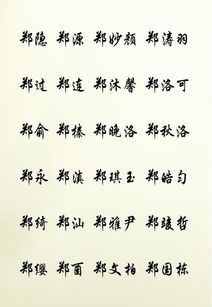 郑隐 郑源 郑妙颜 郑涛羽
郑过 郑连 郑沐馨 郑洛可
郑俞 郑榛 郑晚洛 郑秋洛
郑永 郑滇 郑琪玉 郑皓匀
郑绮 郑汕 郑雅尹 郑陵哲
郑缨 郑面 郑文柏 郑国栋